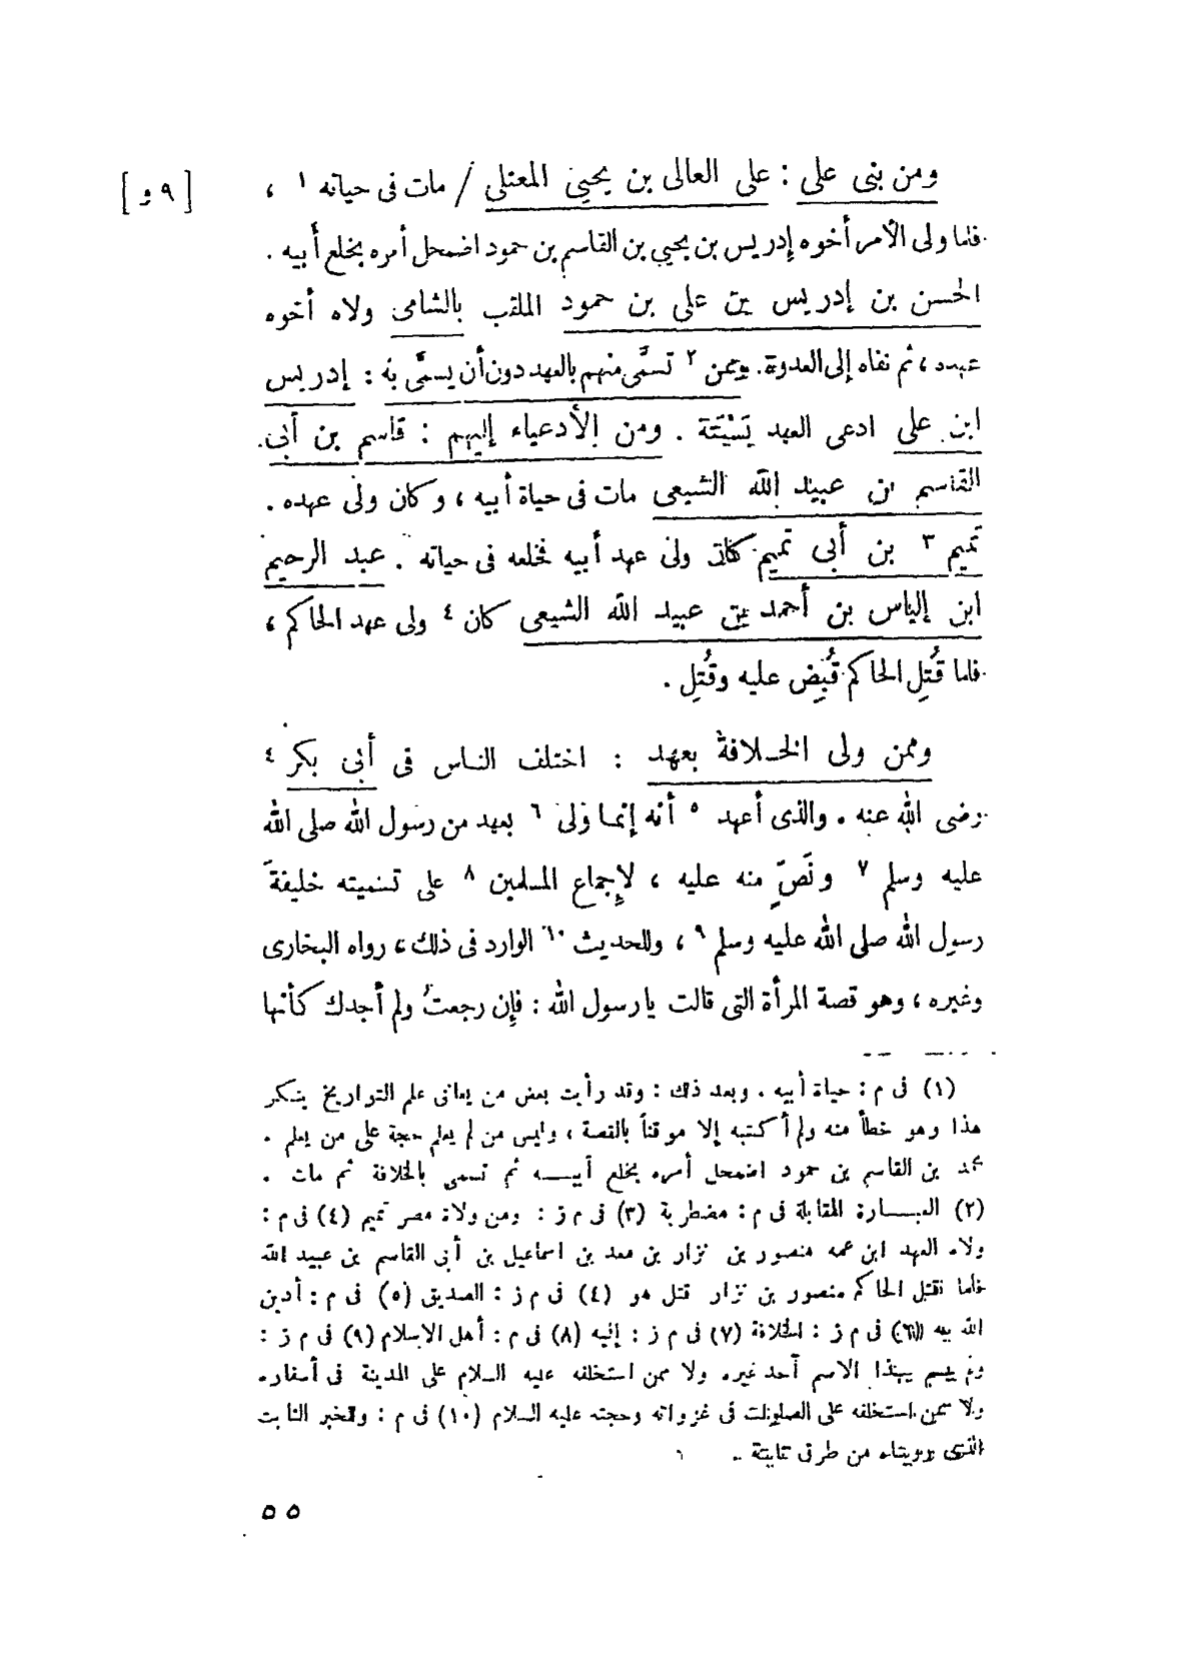 ومن بنى على : على العالى بن يحيى المعتلى / مات فى حياته ١ ،
[ ٩ و ]
فلما ولى الأمر أخوه إدريس بن يحيي بن القاسم بن حمود اضمحل أمره بخلع أبيه .
الحسن بن إدريس بن على بن حمود الملقب بالشامى ولاه أخوه
عهده ، ثم نفاه إلى العدوة . وممن ٢ تسمَّى منهم بالعهد دون أن يسمَّى به : إدريس
ابن على ادعى العهد بسَبْتَة . ومن الأدعياء إليهم : قاسم بن أبى
القاسم بن عبيد الله الشيعى مات فى حياة أبيه ، وكان ولى عهده .
تميم ٣ بن أبى تميم كان ولى عهد أبيه فخلعه فى حياته . عبد الرحيم
ابن إلياس بن أحمد بن عبيد الله الشيعى كان ٤ ولى عهد الحاكم ،
فلما قُتِل الحاكم قُبِض عليه وقُتِل .
وممن ولى الخلافة بعهد : اختلف الناس فى أبى بكر ٤
رضى الله عنه . والذى أعهد ٥ أنه إنما ولى ٦ بعهد من رسول الله صلى الله
عليه وسلم ٧ ونَصٍّ منه عليه ، لإجماع المسلمين ٨ على تسميته خليفة
رسول الله صلى الله عليه وسلم ٩ ، وللحديث ١٠ الوارد فى ذلك ، رواه البخارى
وغيره ، وهو قصة المرأة التى قالت يا رسول الله : فإن رجعتُ ولم أجدك كأنها
(١) فى م : حياة أبيه . وبعد ذلك : وقد رأيت بعض من يعانى علم التواريخ ينكر
هذا وهو خطأ منه ولم أكتبه إلا موقناً بالقصة ، وليس من لم يعلم حجة على من يعلم .
محمد بن القاسم بن حمود اضمحل أمره بخلع أبيـــه ثم تسمى بالخلافة ثم مات .
(٢) العبـــارة المقابلة فى م : مضطربة (٣) فى م ز : ومن ولاة مصر تميم (٤) فى م :
ولاه العهد ابن عمه منصور بن نزار بن معد بن اسماعيل بن أبى القاسم بن عبيد الله
فلما قتل الحاكم منصور بن نزار قتل هو (٤) فى م ز : الصديق (٥) فى م : أدين
الله به (٦) فى م ز : الخلافة (٧) فى م ز : إليه (٨) فى م : أهل الاسلام (٩) فى م ز :
ولم يسم بهذا الاسم أحد غيره ولا ممن استخلفه عليه السلام على المدينة فى أسفاره
ولا ممن استخلفه على الصلوات فى غزواته وحجته عليه السلام (١٠) فى م : وللخبر الثابت
الذى رويناه من طرق ثابتة .
٥٥